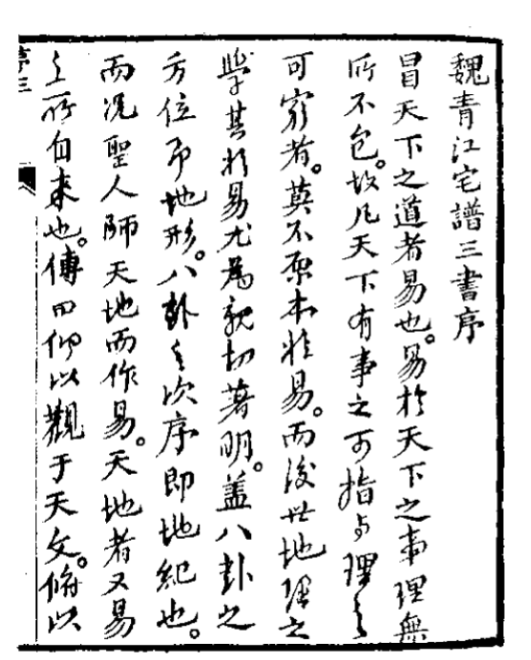 魏青江宅譜三書序
冒天下之道者易也。易於天下之事理無
所不包。故凡天下有事之可指與理之
可窮者。莫不原本於易。而後世地理之
學其於易尤為親切著明。蓋八卦之
方位即地形。八卦之次序即地紀也。
而況聖人師天地而作易。天地者又易
之所自来也。傳曰仰以觀于天文。俯以
序三